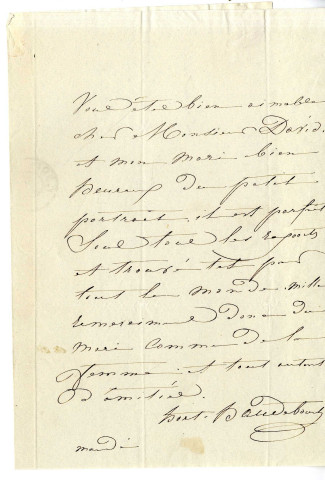 Vous êtes bien aimable
cher Monsieur David
et mon mari bien
heureux du petit
portrait, il est parfait
sous tous les rapports
et trouvé tel par
tout le monde. mille
remerciemens donc du
mari comme de la
femme et tout autant
d'amitiés.
hort. Haudebourt
mardi